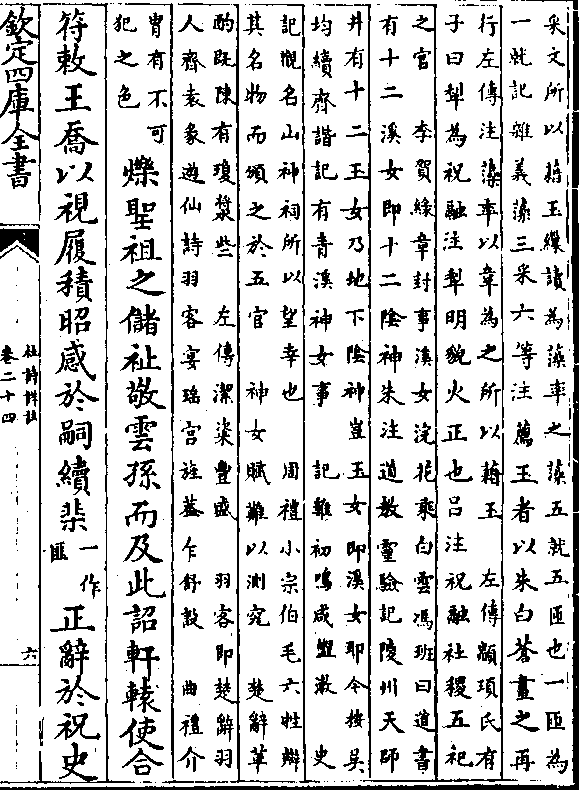 采文所以藉玉繅讀為藻率之藻五就五匝也一匝為
一就記雜義藻三采六等注薦玉者以朱白蒼畫之再
行左傳注藻率以韋為之所以藉玉 左傳顓頊氏有
子曰犁為祝融注犁明貌火正也吕注祝融社稷五祀
之官 李賀緑章封事溪女浣花乘白雲馮班曰道書
有十二溪女即十二陰神朱注道教靈驗記陵州天師
井有十二玉女乃地下陰神豈玉女即溪女耶今按吳
均續齊諧記有青溪神女事 記雞初鳴咸盥漱 史
記觀名山神祠所以望幸也 周禮小宗伯毛六牲辨
其名物而頒之於五官 神女賦難以測究 楚辭華
酌既陳有瓊漿些 左傳潔粢豐盛 羽客即楚辭羽
人齊袁彖遊仙詩羽客宴瑤宫旌蓋乍舒設 曲禮介
胄有不可
犯之色
爍聖祖之儲祉敬雲孫而及此詔軒轅使合
符敕王喬以視履積昭感於嗣續棐
一作
匪
正辭於祝史
欽定四庫全書
杜詩詳註
卷二十四
六